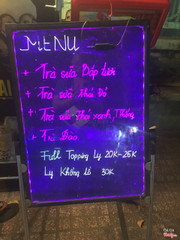 MENU
+ Trà sữa Bắp tươi
+ Trà sữa Khải Đỗ
+ Trà sữa Thái xanh, Hồng
+ Trà Đào
Full Topping Ly 20K-25K
Ly Khổng Lồ 30K